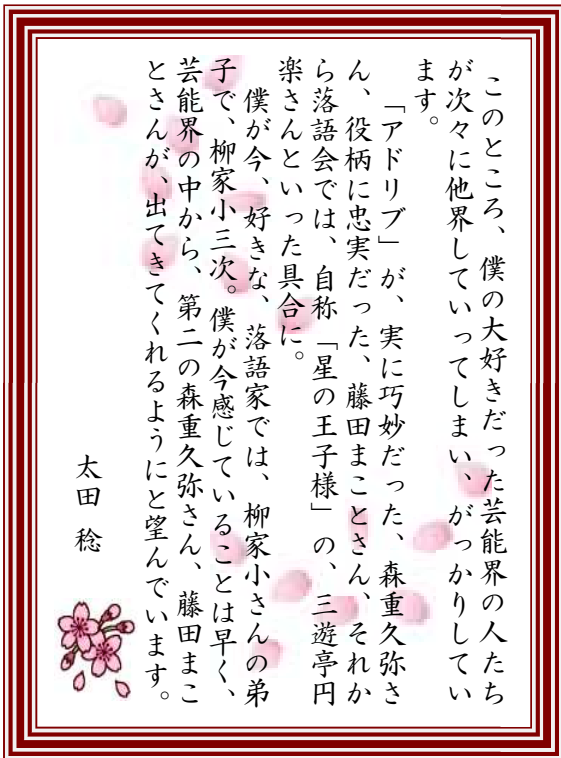 このところ、僕の大好きだった芸能界の人たち
が次々に他界していってしまい、がっかりしてい
ます。
「アドリブ」が、実に巧妙だった、森重久弥さ
ん、役柄に忠実だった、藤田まことさん、それか
ら落語会では、自称「星の王子様」の、三遊亭円
楽さんといった具合に。
僕が今、好きな、落語家では、柳家小さんの弟
子で、柳家小三次。僕が今感じていることは早く、
芸能界の中から、第二の森重久弥さん、藤田まこ
とさんが、出てきてくれるようにと望んでいます。
太田 稔